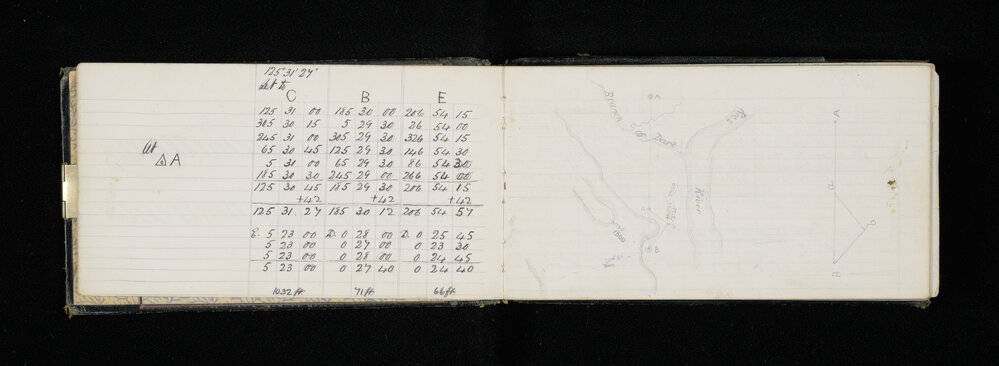 125° 31' 27"
Set to
C B E
125 31 00 185 30 00 206 54 15
305 30 15 5 29 30 26 54 00
245 31 00 305 29 30 326 54 15
65 30 45 125 29 30 146 54 30
5 30 00 65 29 30 86 54 30
185 30 30 245 29 00 266 54 00
125 30 45 185 29 30 206 54 15
+42 +42 +42
125 31 27 185 30 12 206 54 57
At
△ A
E. 5 23 00 D. 0 28 00 D. 0 25 45
5 23 00 0 27 00 0 23 30
5 23 00 0 28 00 0 24 45
5 23 00 0 27 40 0 24 40
1032 ft 71 ft 66 ft
Branch
A
Dart
Rees
River
B
A
B